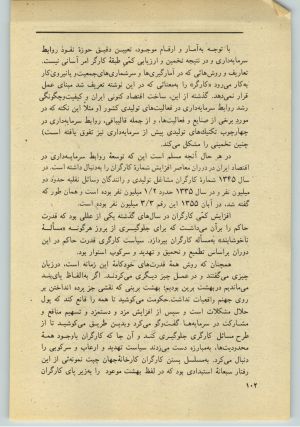 با توجه به‌آمار و ارقام موجود، تعیین دقیق حوزهٔ نفوذ روابط
سرمایه‌داری و در نتیجه تخمین و ارزیابی کمّی طبقهٔ کارگر امر آسانی نیست.
تعاریف و روش‌هائی که در آمارگیری‌ها و سرشماری‌های جمعیت و یا نیروی کار
به‌کار می‌رود «کارگر» را به‌معنائی که در این نوشته تعریف شد مبنای عمل
قرار نمی‌دهد. گذشته از این، ساخت اقتصاد کنونی ایران و کیفیت و چگونگی
رشد روابط سرمایه‌داری در فعالیت‌های تولیدی کشور (و مثلاً این نکته که در
مورد برخی از صنایع و فعالیت‌ها، و از جمله قالیبافی، روابط سرمایه‌داری در
چهارچوب تکنیک‌های تولیدی پیش از سرمایه‌داری نیز تفوق یافته است)
چنین تخمینی را مشکل می‌کند.
در هر حال آنچه مسلم است این که توسعهٔ روابط سرمایه‌داری در
اقتصاد ایران در دوران معاصر افزایش شمارهٔ کارگران را به‌دنبال داشته است. در
سال ۱۳۴۵ شمارهٔ کارگران مشاغل تولیدی و رانندگان وسائل نقلیه حدود دو
میلیون نفر و در سال ۱۳۳۵ حدود ۱/۲ میلیون نفر بوده است و همان طور که
گفته شد، در آبان ۱۳۵۵ این رقم ۳/۳ میلیون نفر بوده است.
افزایش کمّی کارگران در سال‌های گذشته یکی از عللی بود که قدرت
حاکم را برآن می‌داشت که برای جلوگیری از بروز هرگونه «مسألهٔ
ناخوشایند» به‌مسأله کارگران بپردازد. سیاست کارگری قدرت حاکم در این
دوران براساس تطمیع و تحمیق و تهدید و سرکوب استوار بود.
همچنان که روش همهٔ قدرت‌های خودکامهٔ این زمانه است، درزبان
چیزی می‌گفتند و در عمل چیز دیگری می‌کردند. اگر به‌الفاظ پای‌بند
می‌ماندیم در بهشت برین بودیم؛ بهشت برینی که نقشی جز پرده انداختن بر
روی جهنم واقعیات نداشت. حکومت می‌کوشید تا همه را قانع کند که پول
حلال مشکلات است و سپس از افزایش مزد و دستمزد و تسهیم منافع و
مشارکت در سرمایه‌ها گفت‌وگو می‌کرد و بدین طریق می‌کوشید تا از
طرح مسائل کارگری جلوگیری کند و آن جا که کارگران باوجود همهٔ
محدودیت‌ها، به‌مبارزه دست می‌زدند سیاست تهدید و ارعاب و سرکوبی را
دنبال می‌کرد. به‌مسلسل بستن کارگران کارخانهٔ جهان چیت نمونه‌ئی از این
رفتار سبعانهٔ استبدادی بود که در لفظ بهشت موعود را به‌زیر پای کارگران
۱۰۲